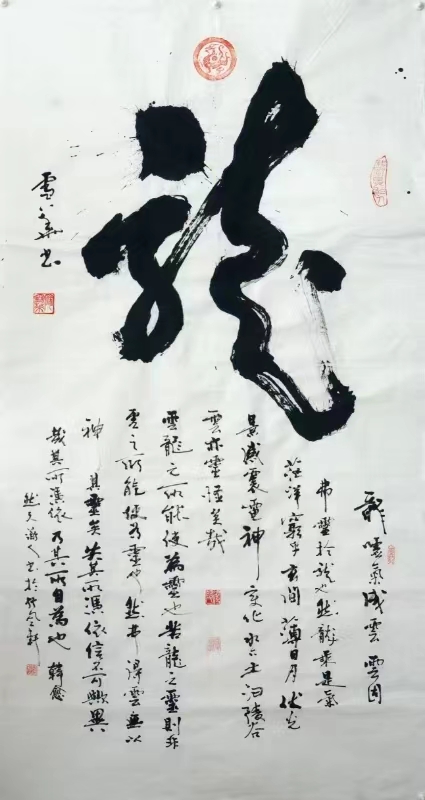 龍
龍噓氣成雲雲固
弗靈於龍也然龍乘是氣
茫洋窮乎玄間薄日月伏光
景感震電神變化水下土汩陵谷
雲亦靈怪矣哉
雲龍之所能使為靈也若龍之靈則非
雲之所能使為靈也然弗得雲無以
神其靈矣失其所憑依信不可歟異
哉其所憑依乃其所自為也 韓愈